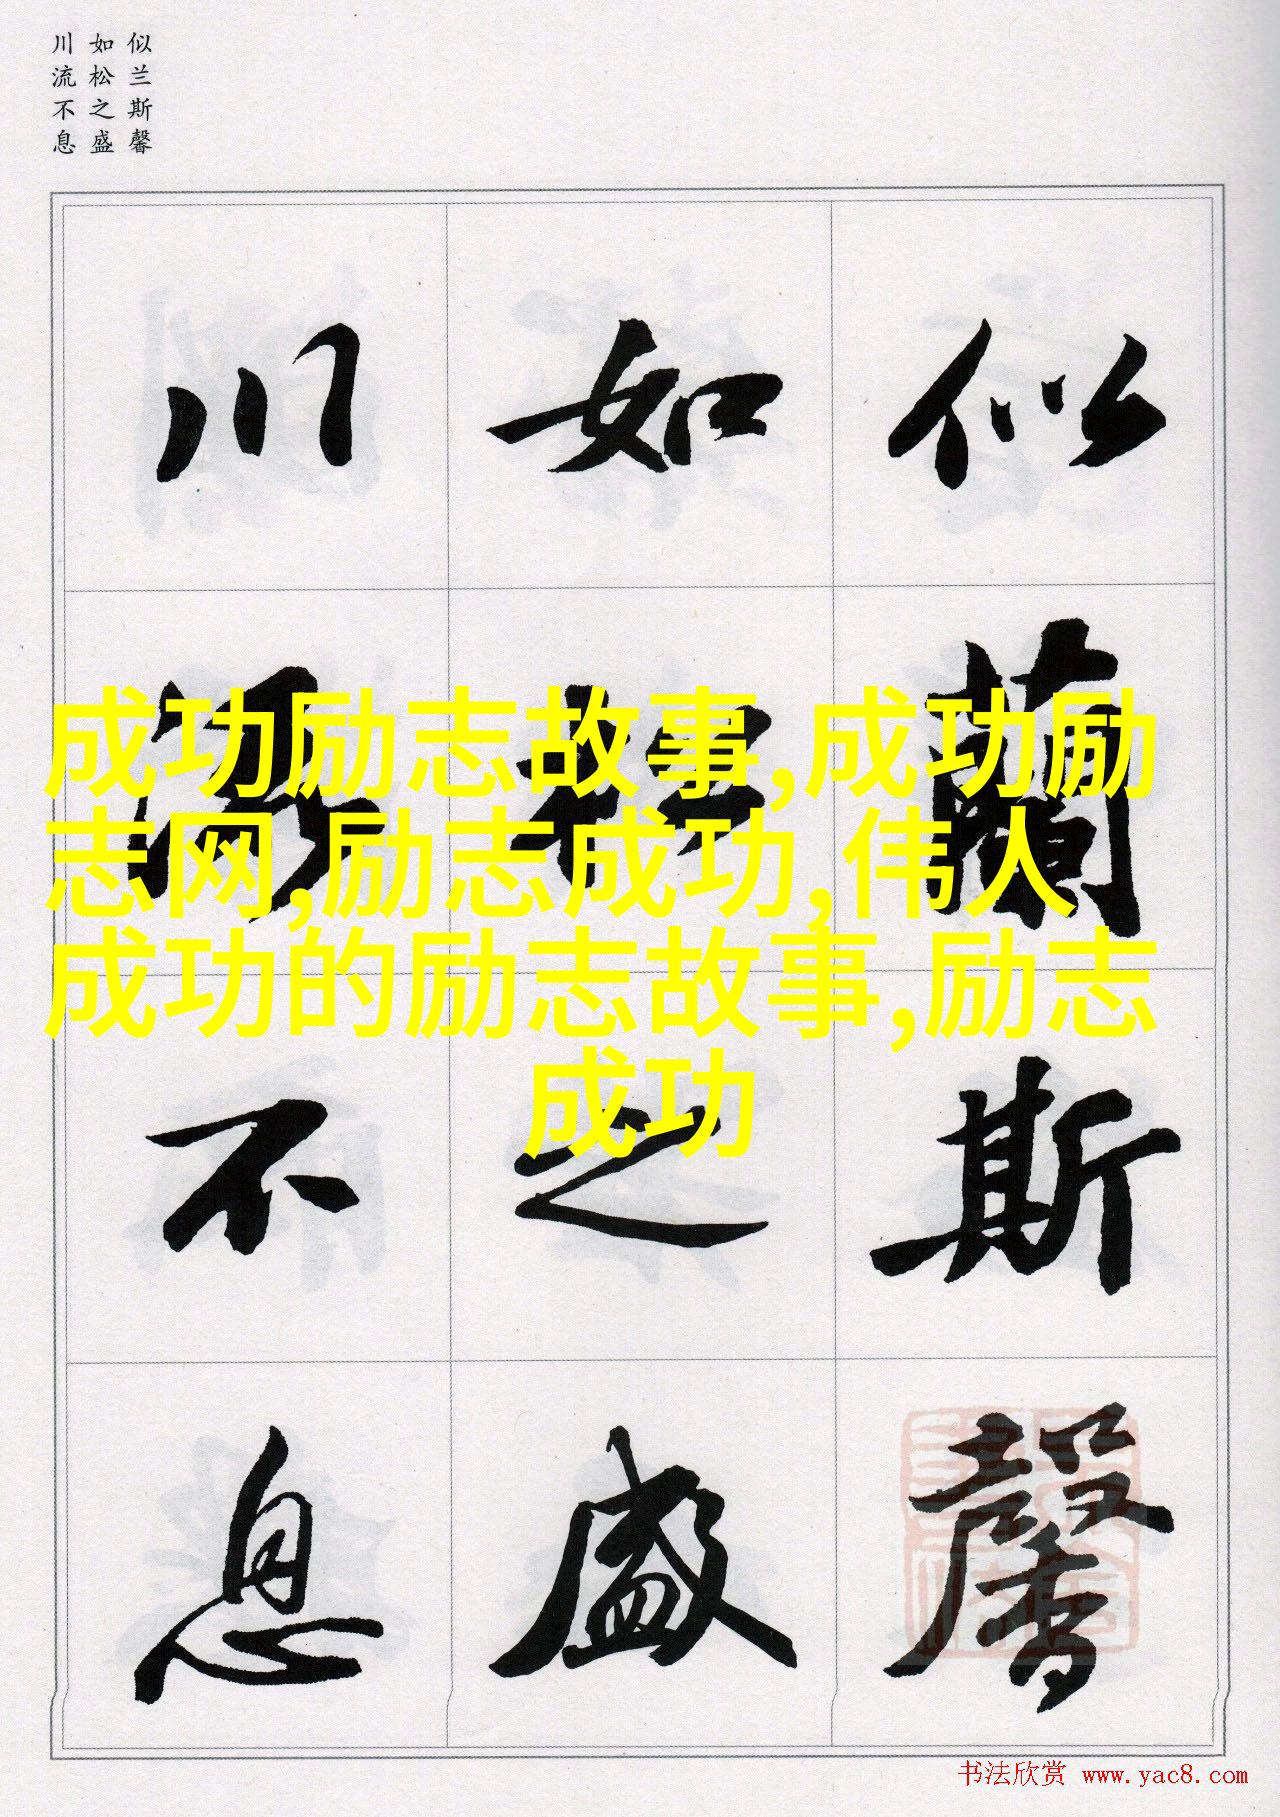 似兰斯馨
如松之盛
川流不息
似蘭斯馨
如松之盛
川流不息
成功励志故事,成功励
志网,励志成功,伟人
成功的励志故事,励志
成功
书法欣赏 www.yac8.com